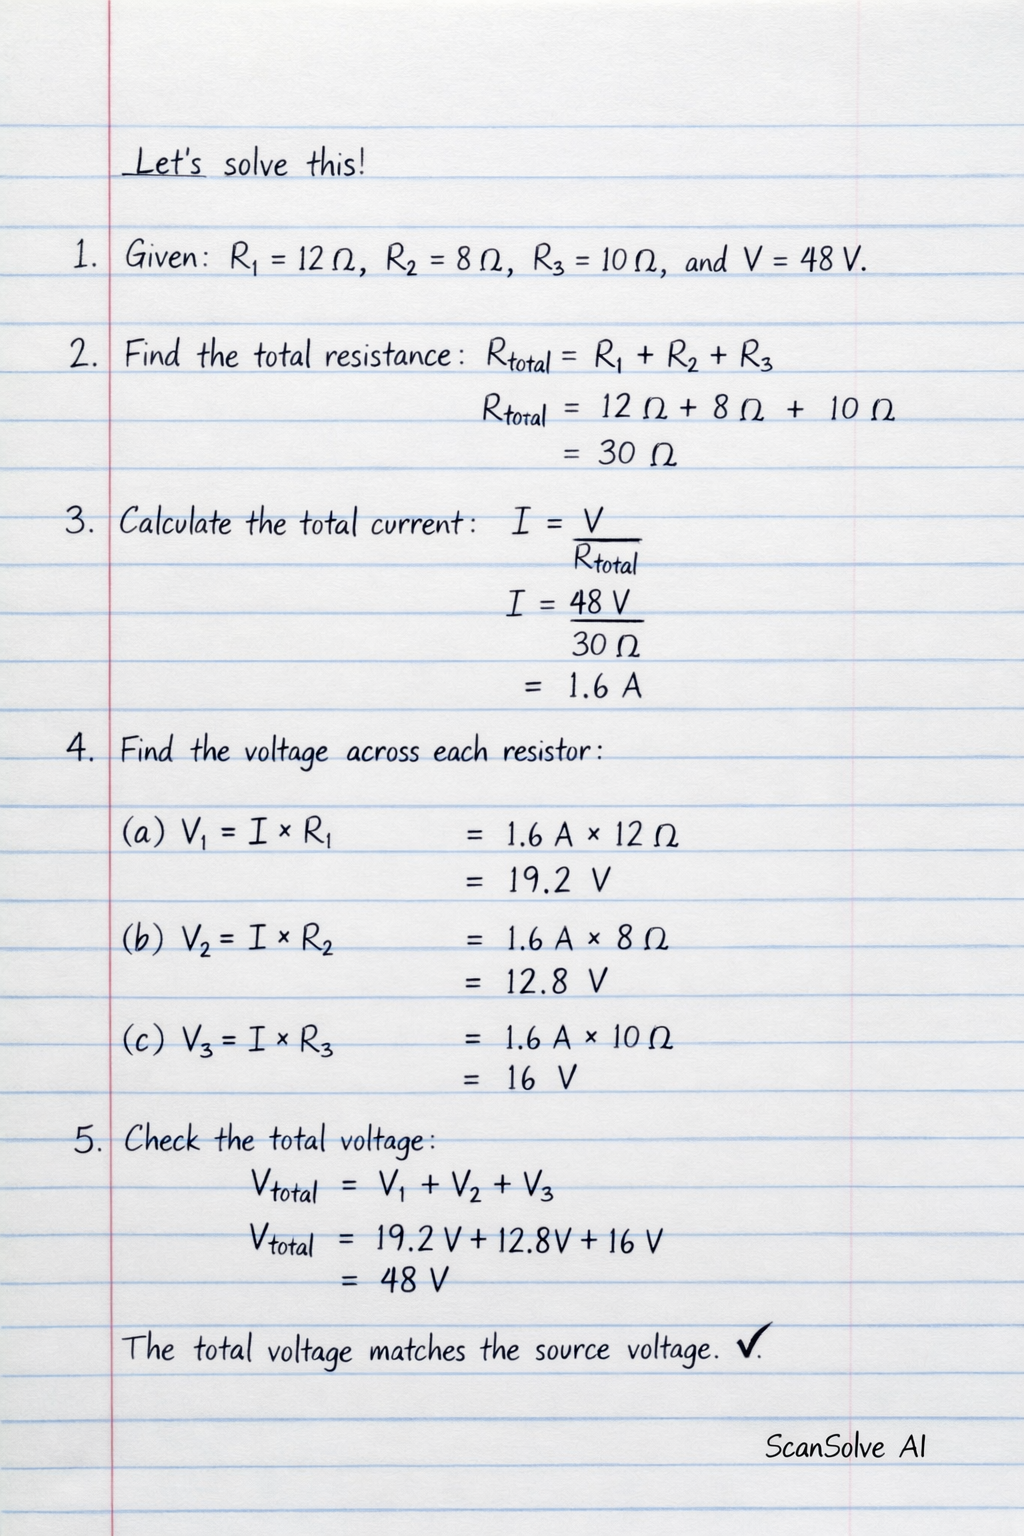 Let's solve this!
1. Given: R₁ = 12 Ω, R₂ = 8 Ω, R₃ = 10 Ω, and V = 48 V.
2. Find the total resistance: Rtotal = R₁ + R₂ + R₃
Rtotal = 12 Ω + 8 Ω + 10 Ω
= 30 Ω
3. Calculate the total current: I = V
Rtotal
I = 48 V
30 Ω
= 1.6 A
4. Find the voltage across each resistor:
(a) V₁ = I × R₁ = 1.6 A × 12 Ω
= 19.2 V
(b) V₂ = I × R₂ = 1.6 A × 8 Ω
= 12.8 V
(c) V₃ = I × R₃ = 1.6 A × 10 Ω
= 16 V
5. Check the total voltage:
Vtotal = V₁ + V₂ + V₃
Vtotal = 19.2 V + 12.8V + 16 V
= 48 V
The total voltage matches the source voltage. ✓.
ScanSolve AI